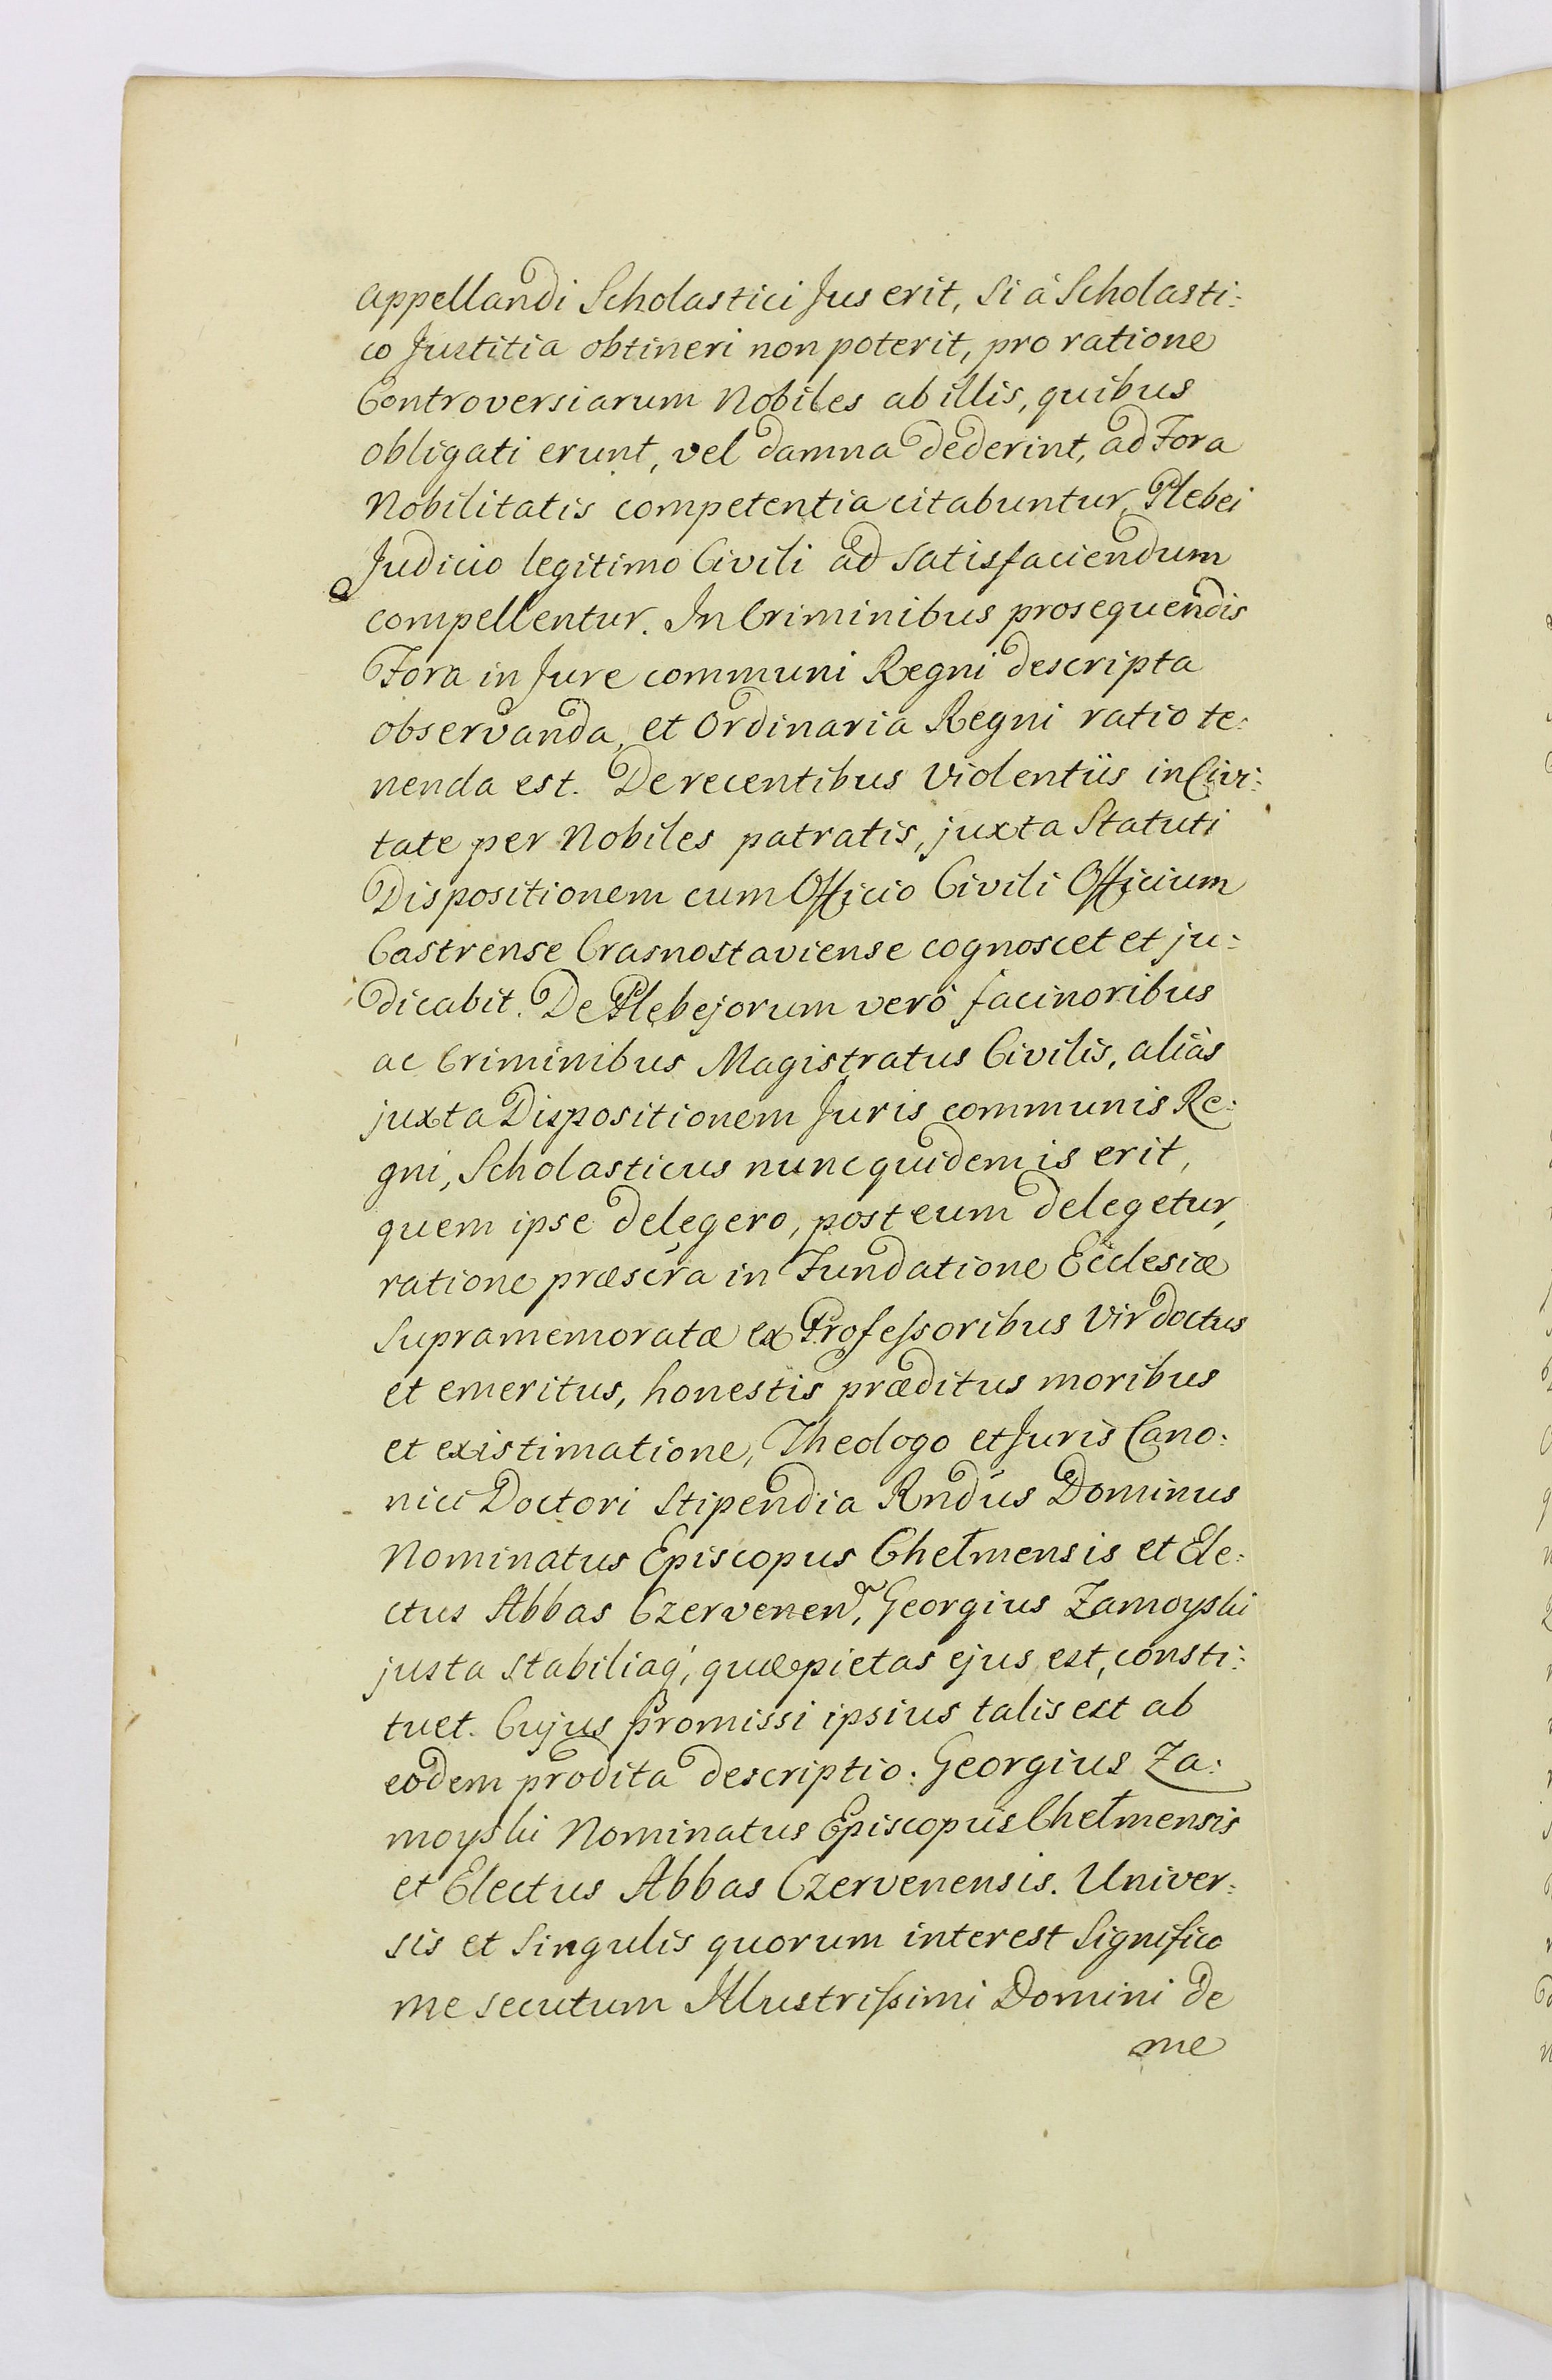 appellandi Scholastici Jus erit, Si à Scholasti:
co Justitia obtineri non poterit, pro ratione
Controversiarum Nobiles ab illis, quibus
obligati erunt, vel damna dederint, ad Fora
Nobilitatis competentia citabuntur, Plebei
Judicio legitimo Civili ad satisfaciendum
compellentur. In Criminibus prosequendis
Fora in Jure communi Regni descripta
observanda, et Ordinaria Regni ratio te:
nenda est. De recentibus Violentiis in Civi:
tate per Nobiles patratis, juxta Statuti
Dispositionem cum Officio Civili Officium
Castrense Crasnostaviense cognoscet et ju:
dicabit. De Plebejorum verò facinoribus
ac Criminibus Magistratus Civilis, aliàs
juxta Dispositionem Juris communis Re:
gni, Scholasticus nunc quidem is erit,
quem ipse delegero, post eum delegetur,
ratione præscra in Fundatione Ecclesiæ
Supramemoratæ ex Professoribus Vir doctus
et emeritus, honestis præditus moribus
et existimatione, Theologo et Juris Cano:
nici Doctori Stipendia Rndus Dominus
Nominatus Episcopus Chełmensis et Ele:
ctus Abbas Czervenen, Georgius Zamoyski
justa stabiliaq', quæ pietas ejus est, consti:
tuet. Cujus promissi ipsius talis est ab
eodem prodita descriptio: Georgius Za:
moyski Nominatus Episcopus Chełmensis
et Electus Abbas Czervenensis. Univer:
sis et Singulis quorum interest Significo
me secutum Illustrissimi Domini de
me